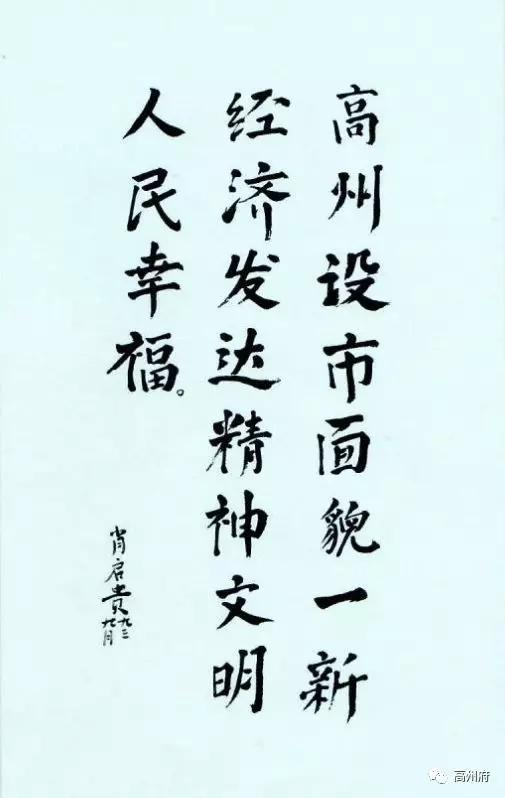 高州设市面貌一新
经济发达精神文明
人民幸福。
肖启贵
九三
九月
高州府